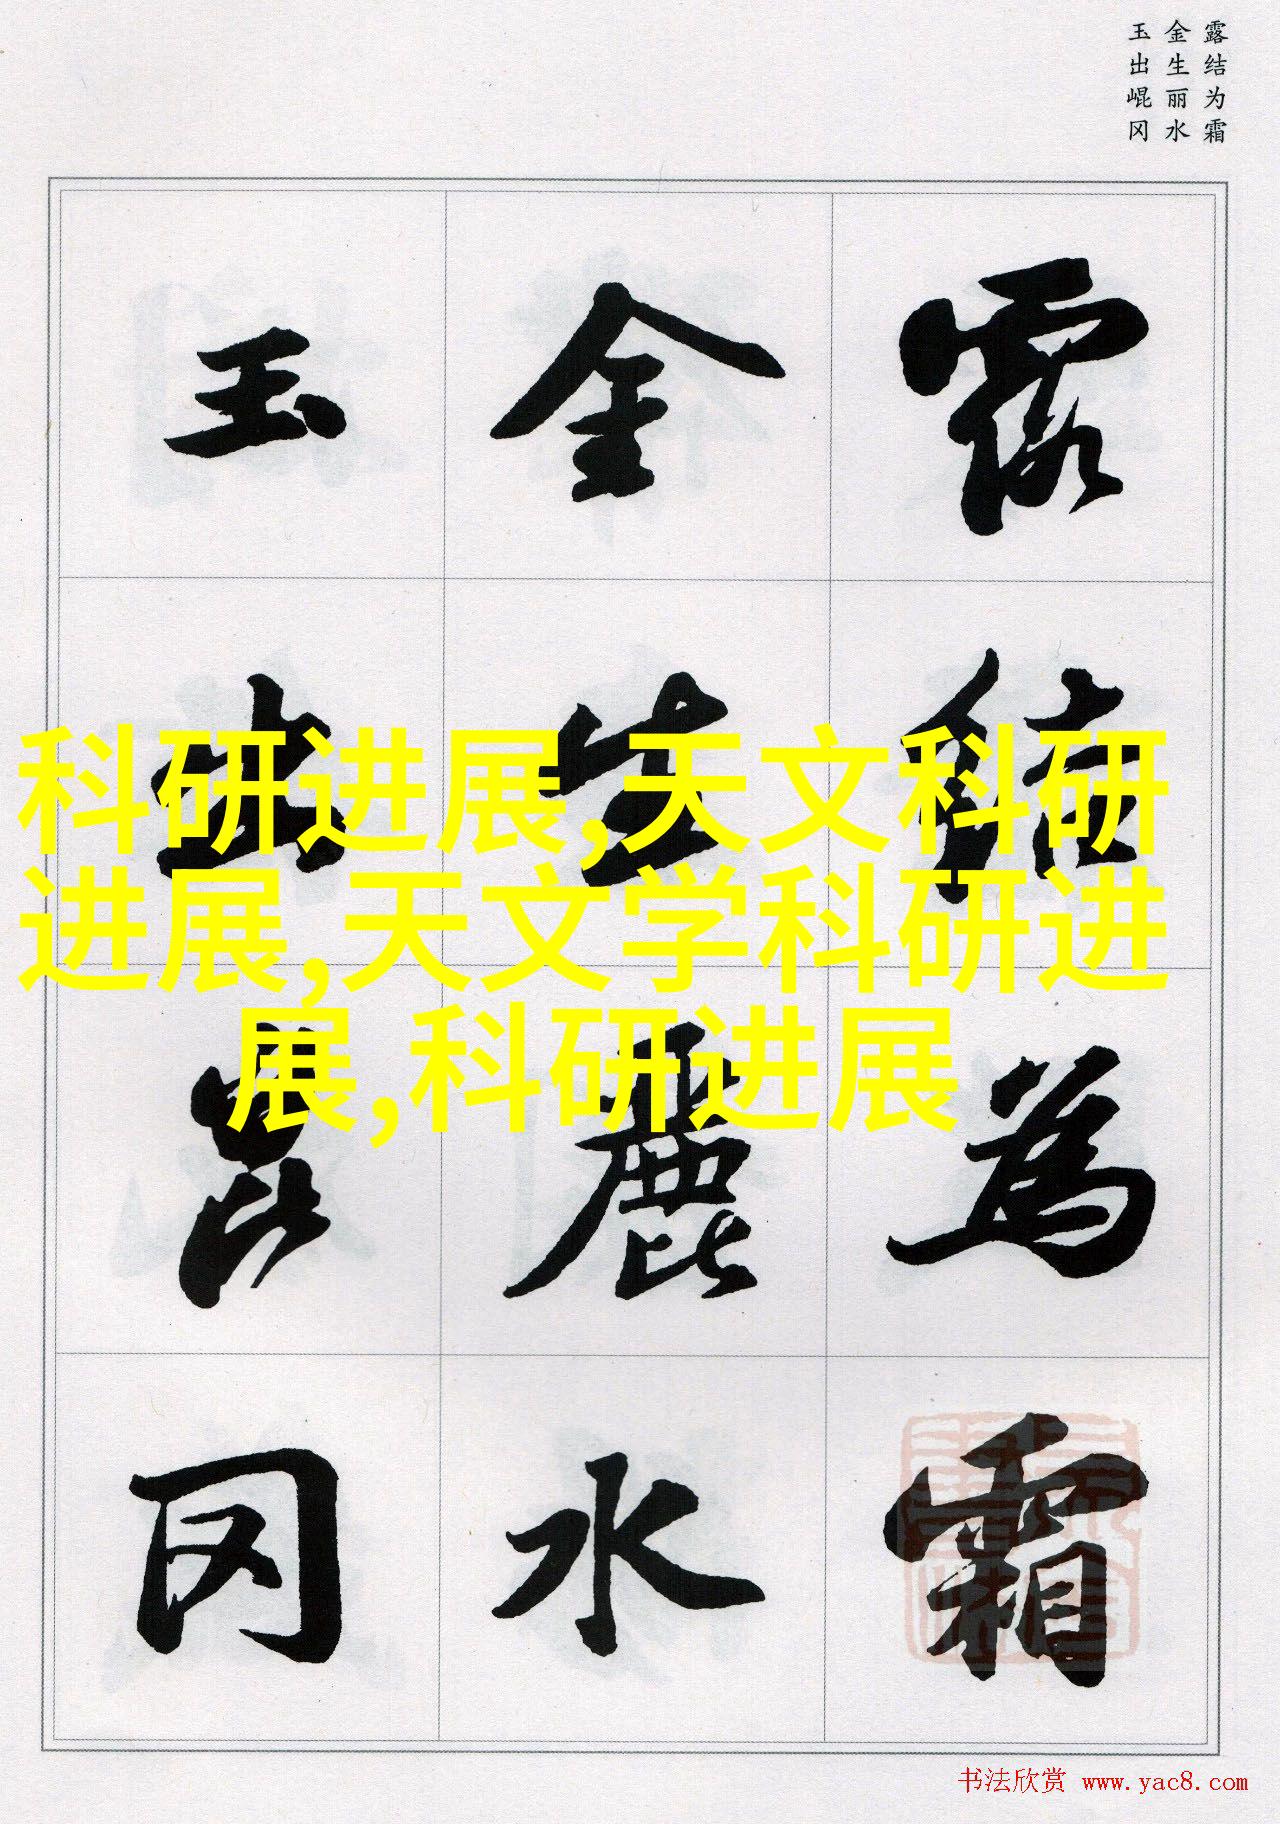 露结为霜
金生丽水
玉出崐冈
露結為霜
金生麗水
玉出崑冈
科研进展,天文科研
进展,天文学科研进
展,科研进展
书法欣赏 www.yac8.com